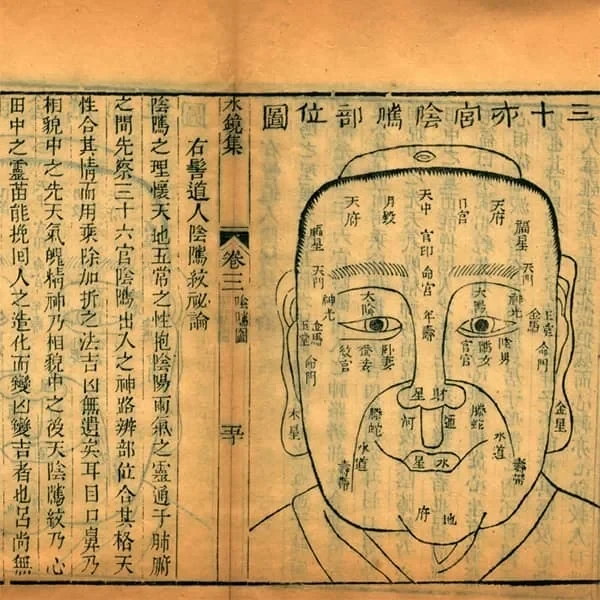 三十六宮陰騭部位圖
天府
日宮
天中
月殿
天府
福星
官印
福星
天門
命宮
天門
神光
太陽
年壽
太陰
神光
玉堂
金馬
命門
陰男
騭女
官官
卧蠶
金馬
玉堂
命門
金星
木星
財星
通河
螣蛇
螣蛇
水道
水道
水星
壽帶
壽帶
地府
水鏡集
卷三
陰騭圖
右髻道人陰騭紋祕論
陰騭之理懷天地五常之性抱陰陽兩氣之靈通于肺腑
之間先察三十六官陰騭出入之神路辨部位合其格天
性合其情而用乘除加折之法吉凶無遺矣耳目口鼻乃
相貌中之先天氣魄精神乃相貌中之後天陰騭紋乃心
田中之靈苗能挽回人之造化而變凶變吉者也呂尚無